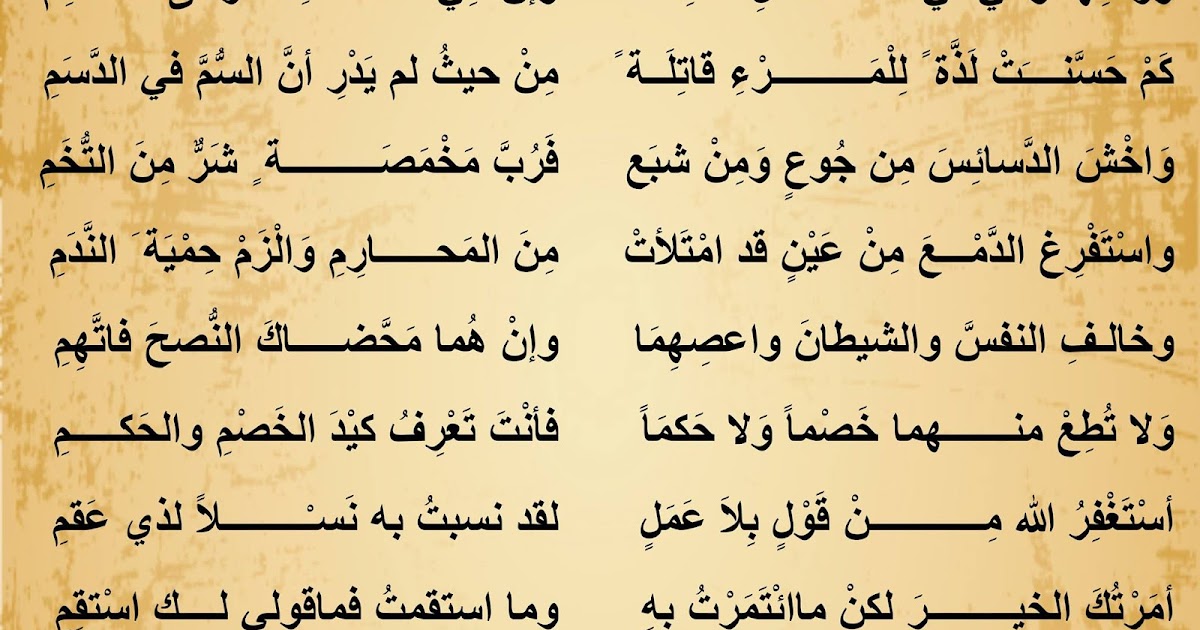 كَمْ حَسَّنَتْ لَذَّةً لِلْمَرْءِ قاتِلَةً مِنْ حيثُ لم يَدْرِ أنَّ السُّمَّ في الدَّسَمِ
وَاخْشَ الدَّسائِسَ مِن جُوعٍ وَمِنْ شبَع فَرُبَّ مَخْمَصَةٍ شَرٌّ مِنَ التُّخَمِ
واسْتَفْرِغ الدَّمْعَ مِنْ عَيْنٍ قد امْتَلأتْ مِنَ المَحارِمِ وَالْزَمْ حِمْيَةَ النَّدَمِ
وخالفِ النفسَّ والشيطانَ واعصِهِمَا وإنْ هُما مَحَّضاكَ النُّصحَ فاتَّهِمِ
وَلا تُطِعْ منهما خَصْماً وَلا حَكمَاً فأنْتَ تَعْرِفُ كيْدَ الخَصْمِ والحَكمِ
أسْتَغْفِرُ الله مِنْ قَوْلٍ بِلاَ عَمَلٍ لقد نسبتُ به نَسْلاً لذي عَقمِ
أمَرْتُكَ الخيرَ لكنْ ماائْتَمَرْتُ بهِ وما استقمتُ فماقولي لك اسْتقِمِ